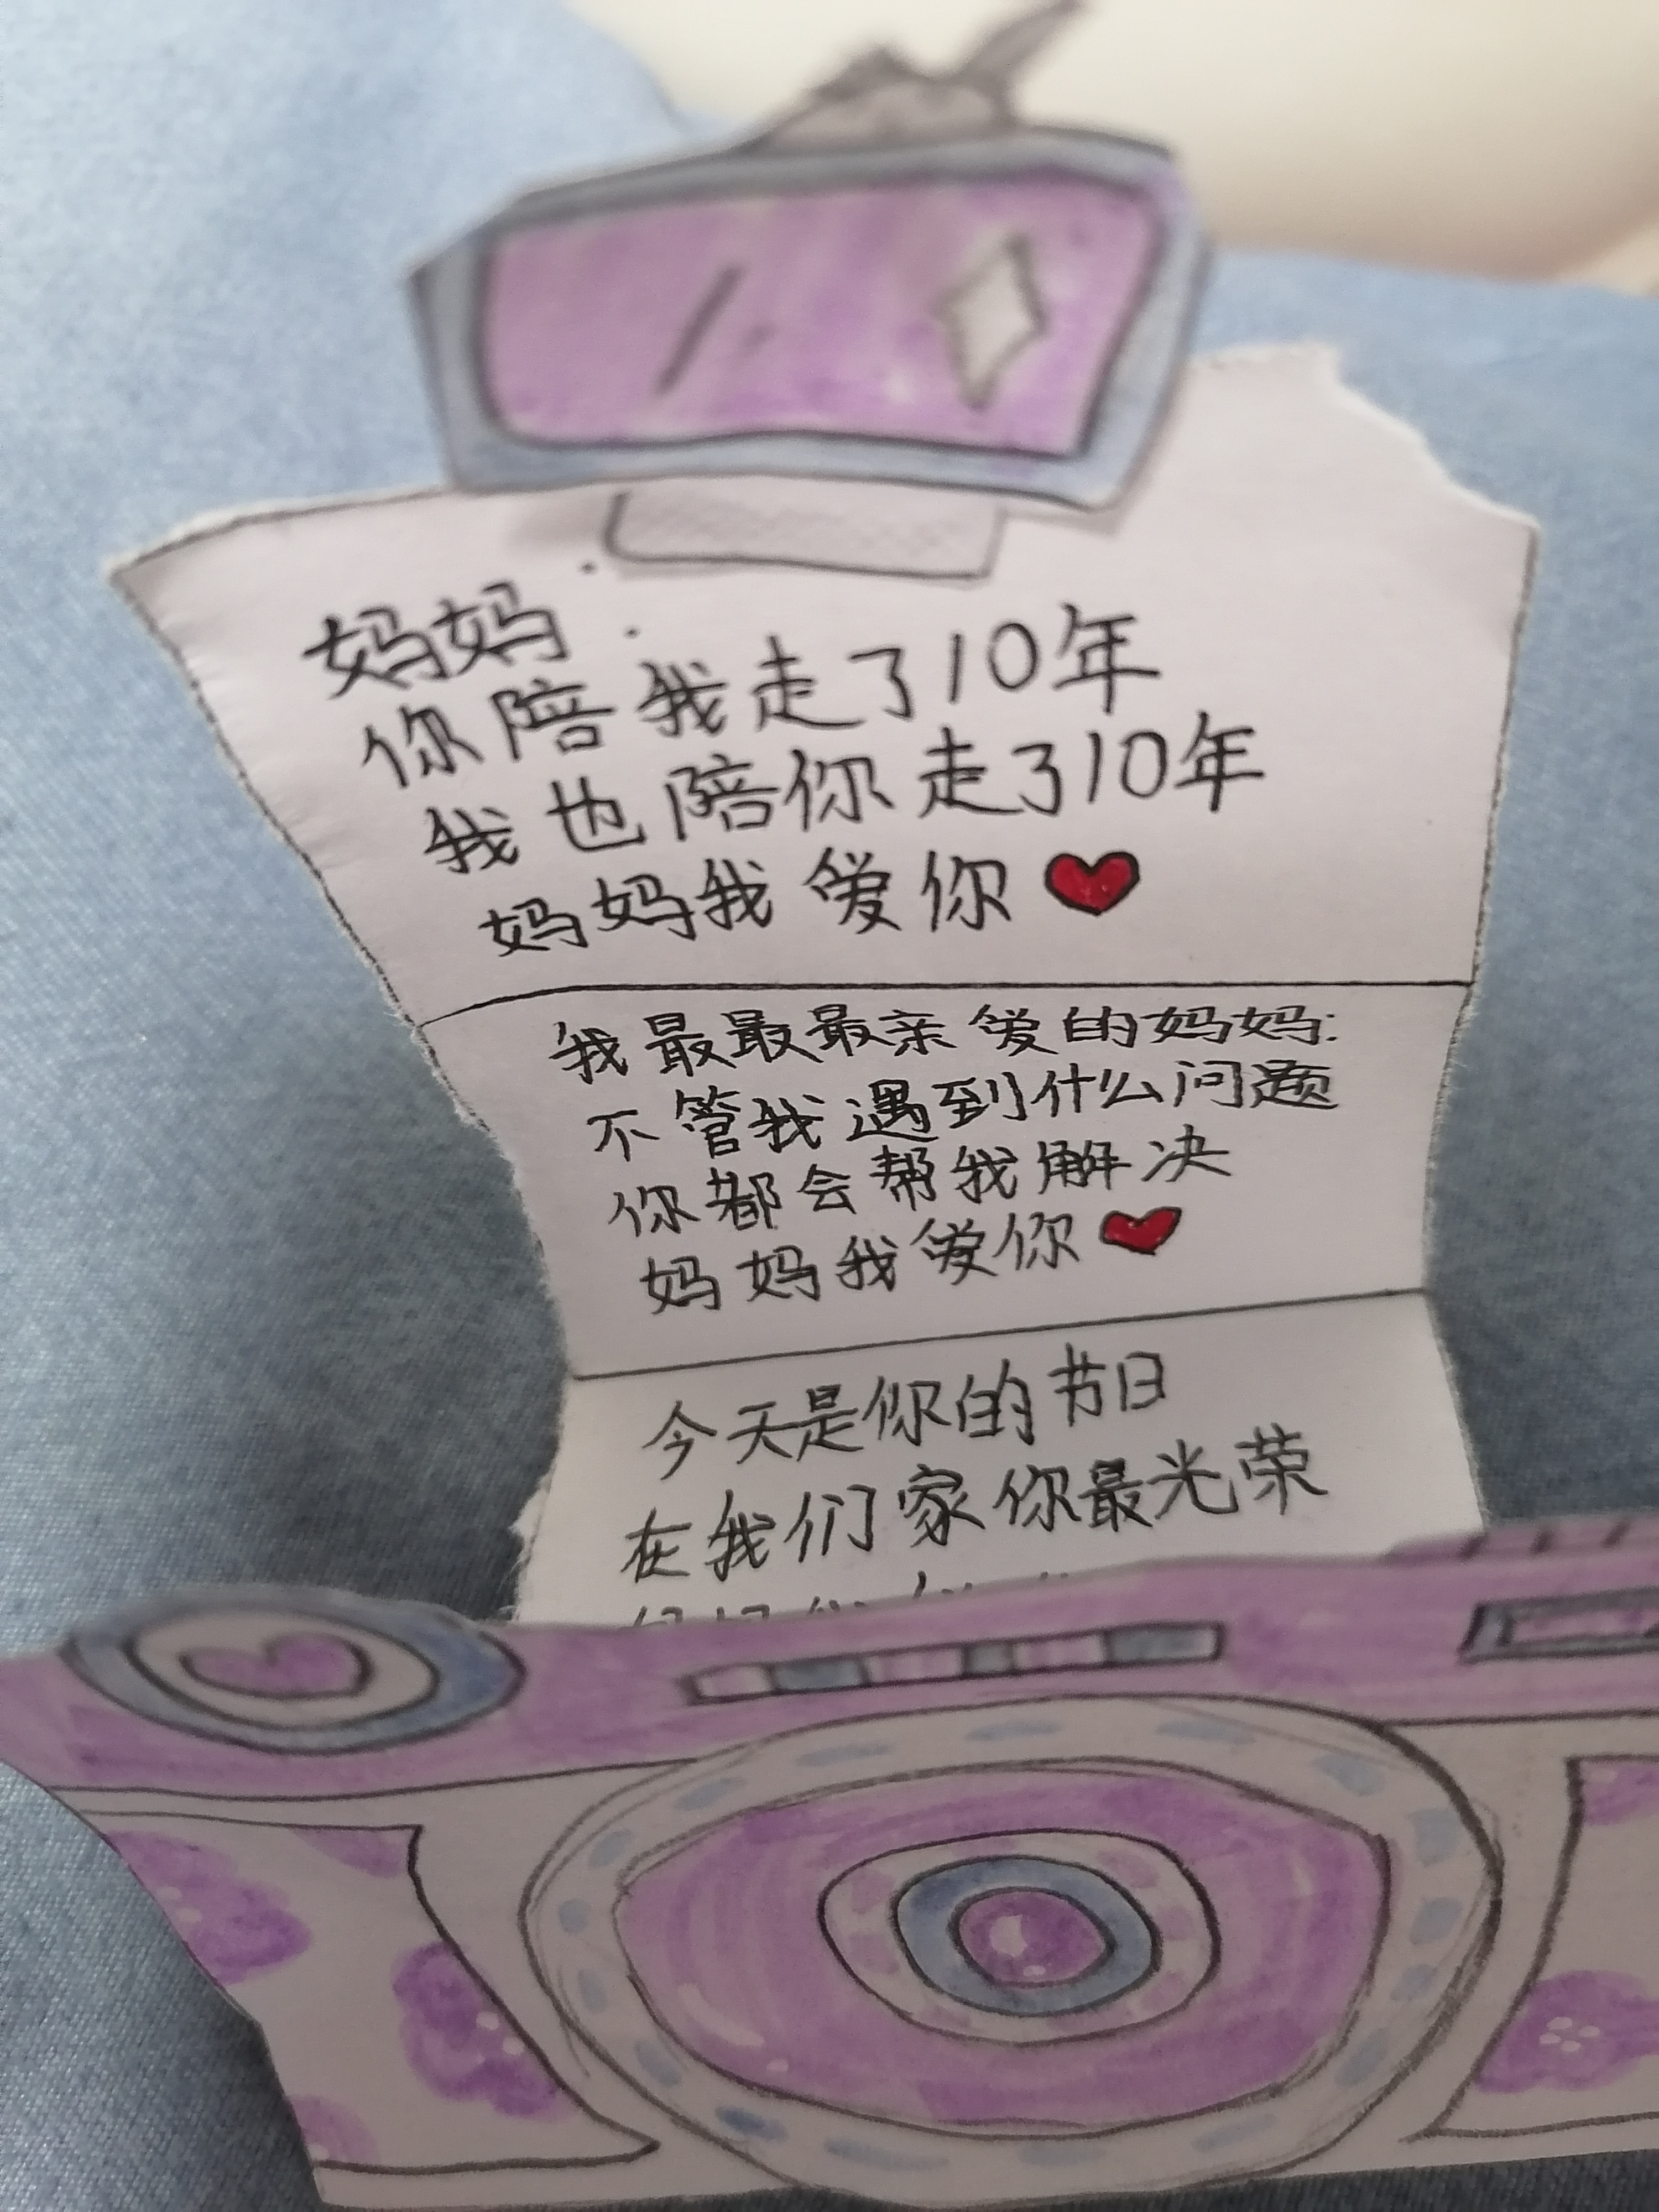 妈妈:
你陪我走了10年
我也陪你走了10年
妈妈我爱你
我最最最亲爱的妈妈:
不管我遇到什么问题
你都会帮我解决
妈妈我爱你
今天是你的节日
在我们家你最光荣